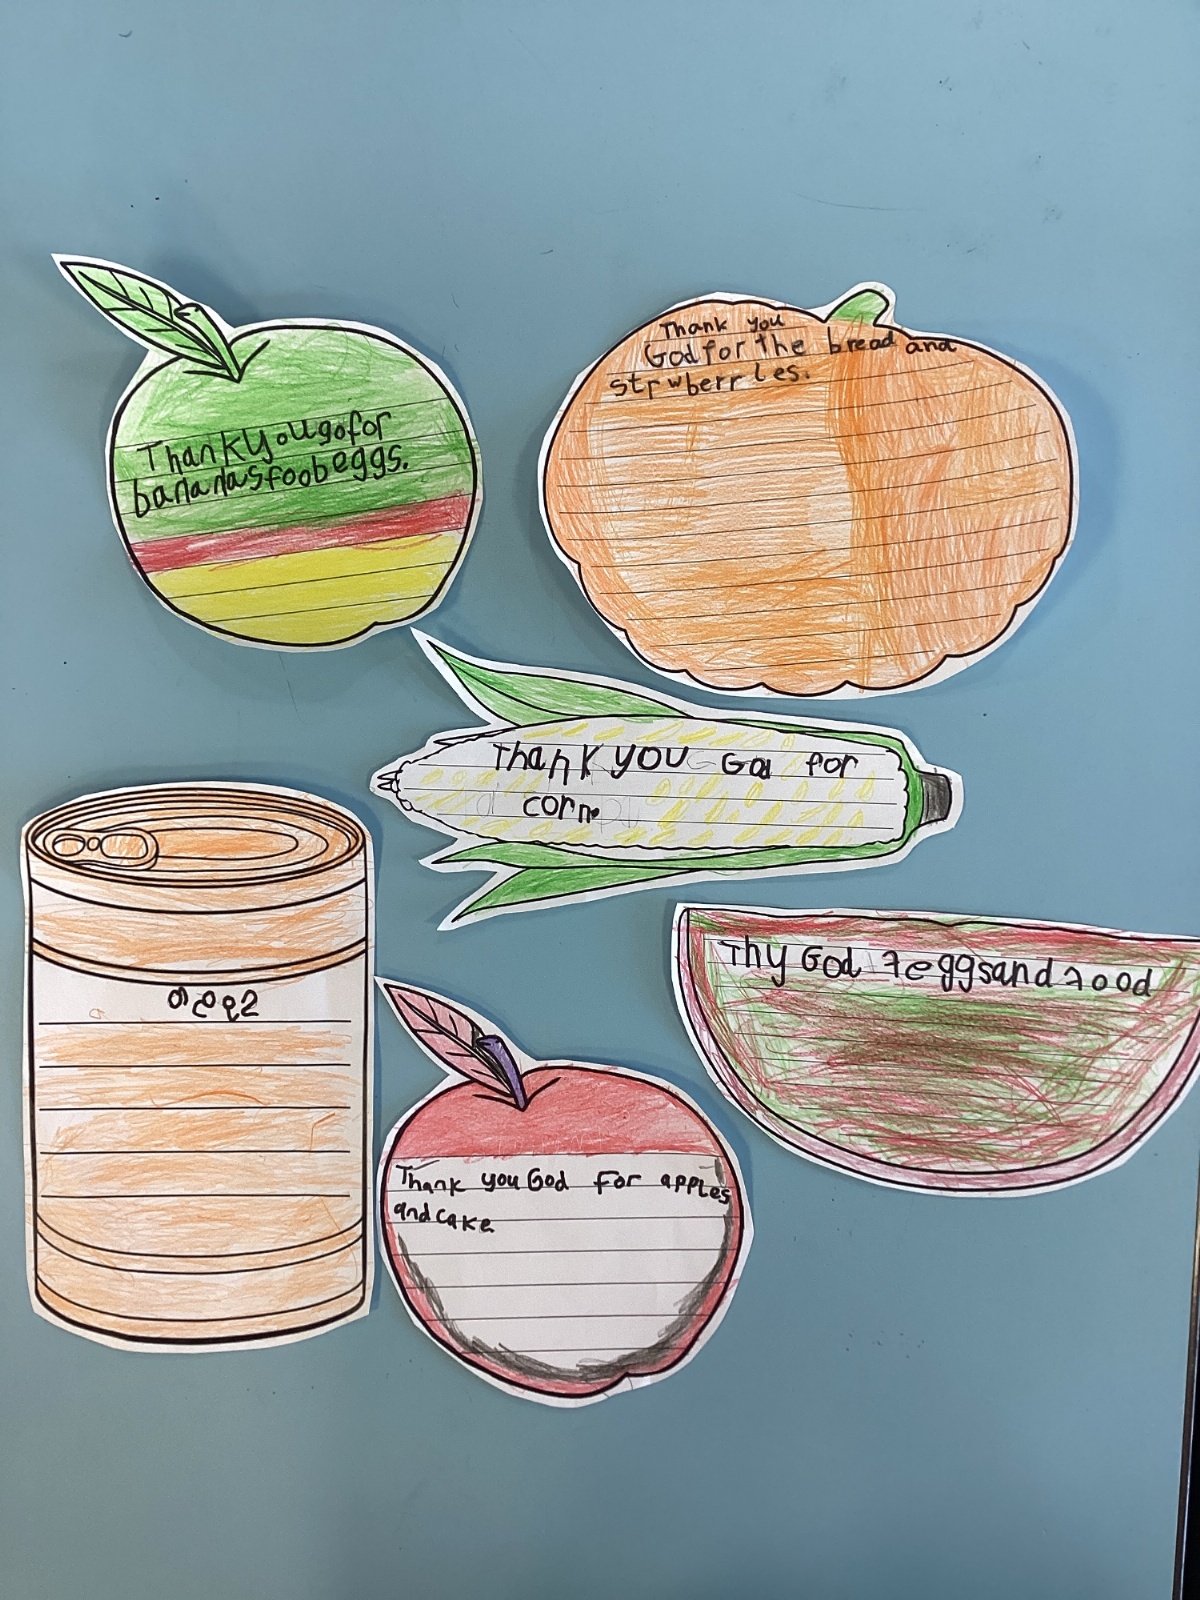 Thankyougofor
bananasfoobeggs.
Thank you
God for the bread and
strwberries.
Thank you God for
corn.
Thy God 7eggsand7ood
Thank you God For apples
andcake